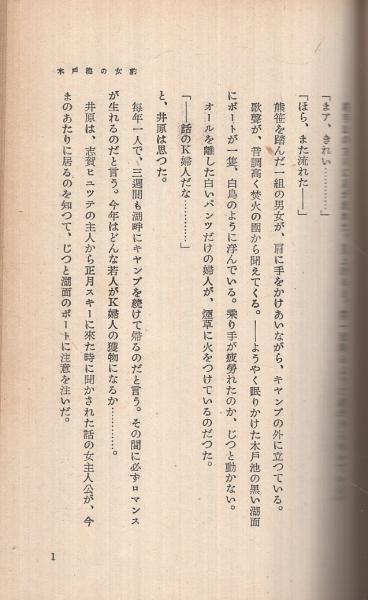 木戸池の女豹
「ほら、また流れた――」
「まア、きれい…………」
熊笹を踏んだ一組の男女が、肩に手をかけあいながら、キャンプの外に立つている。
歌聲が、音調高く焚火の圏から聞えてくる。――ようやく眠りかけた木戸池の黒い湖面
にボートが一隻、白鳥のように浮んでいる。乗り手が疲勞れたのか、じつと動かない。
オールを離した白いパンツだけの婦人が、煙草に火をつけているのだつた。
「――話のK婦人だな…………」
と、井原は思つた。
毎年一人で、三週間も湖畔にキャンプを続けて帰るのだと言う。その間に必ずロマンス
が生れるのだと言う。今年はどんな若人がK婦人の獲物になるか…………。
井原は、志賀ヒュッテの主人から正月スキーに來た時に聞かされた話の女主人公が、今
まのあたりに居るのを知つて、じつと湖面のボートに注意を注いだ。
1